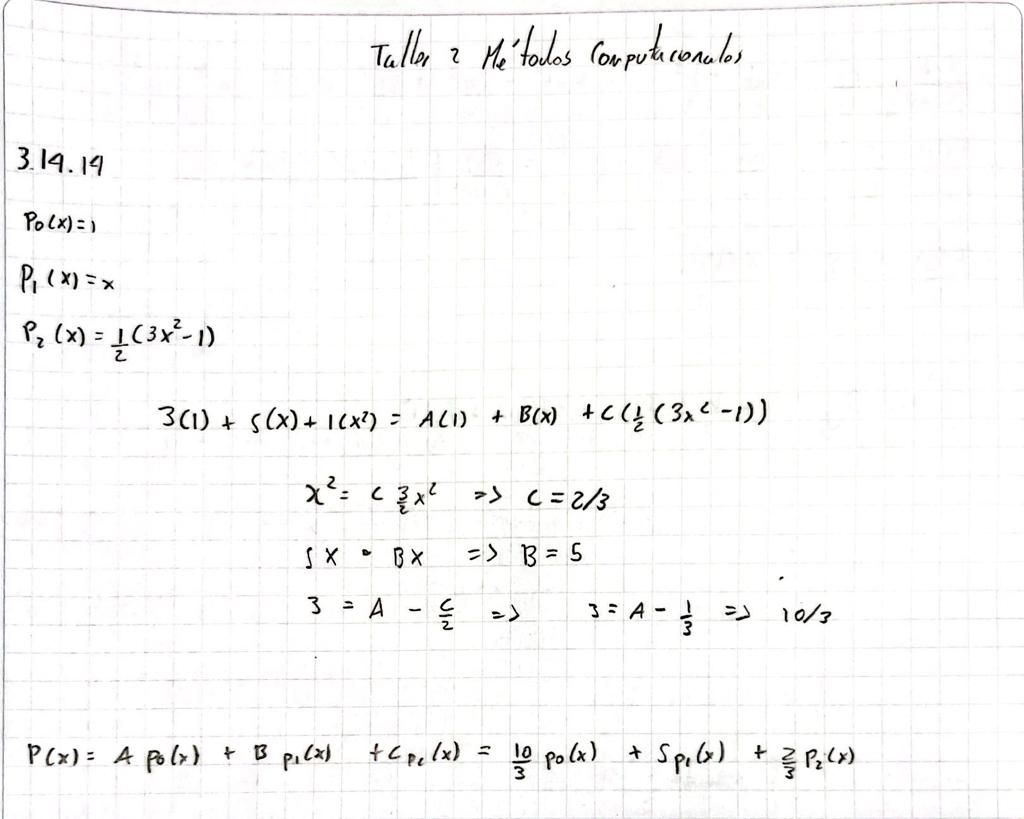 Taller 2 Métodos Computacionales
3.14.14
P₀(x)=1
P₁(x)=x
P₂(x) = 1/2 (3x²-1)
3(1) + 5(x) + 1(x²) = A(1) + B(x) + C(1/2 (3x² -1))
x² = C 3/2 x² => C = 2/3
5x = Bx => B = 5
3 = A - C/2 => 3 = A - 1/3 => 10/3
P(x) = A p₀(x) + B p₁(x) + C p₂(x) = 10/3 p₀(x) + 5 p₁(x) + 2/3 P₂(x)